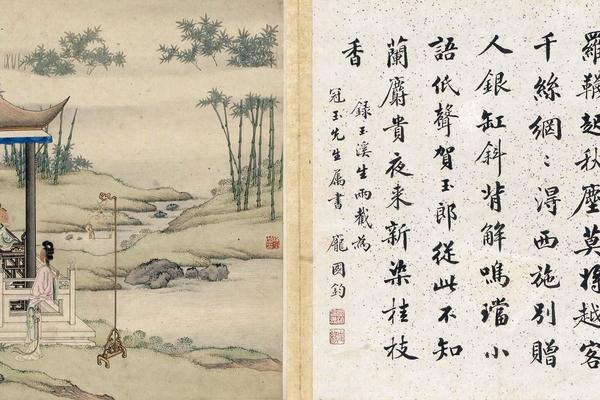 羅韈起秋塵莫將越客
千絲網〻得西施別贈
人銀缸斜背解鳴璫小
語低聲賀玉郎從此不知
蘭麝貴夜来新染桂枝
香
録玉溪生兩截為
冠玉先生属書 龐國鈞